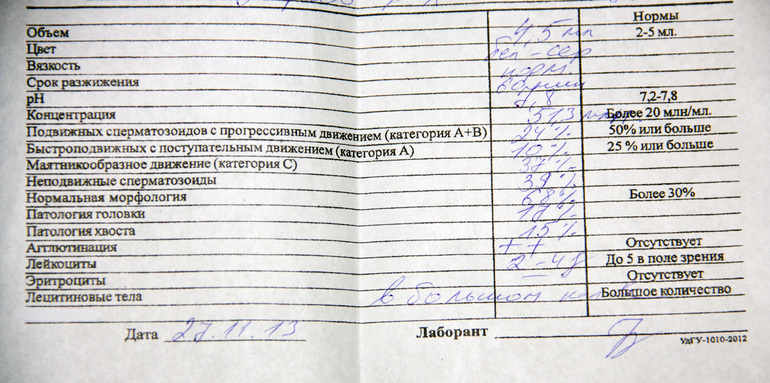 Нормы
Объем 4,5 мл 2-5 мл.
Цвет бел-сер
Вязкость норм.
Срок разжижения
pH 7,2-7,8
Концентрация 51,3 Более 20 млн/мл.
Подвижных сперматозоидов с прогрессивным движением (категория А+В) 24% 50% или больше
Быстроподвижных с поступательным движением (категория А) 10% 25 % или больше
Маятникообразное движение (категория С)
Неподвижные сперматозоиды 39%
Нормальная морфология 68% Более 30%
Патология головки 17%
Патология хвоста 15%
Агглютинация ++ Отсутствует
Лейкоциты 2-4 До 5 в поле зрения
Эритроциты Отсутствует
Лецитиновые тела в большом Большое количество
Дата 27.11.13 Лаборант
УдГУ-1010-2012